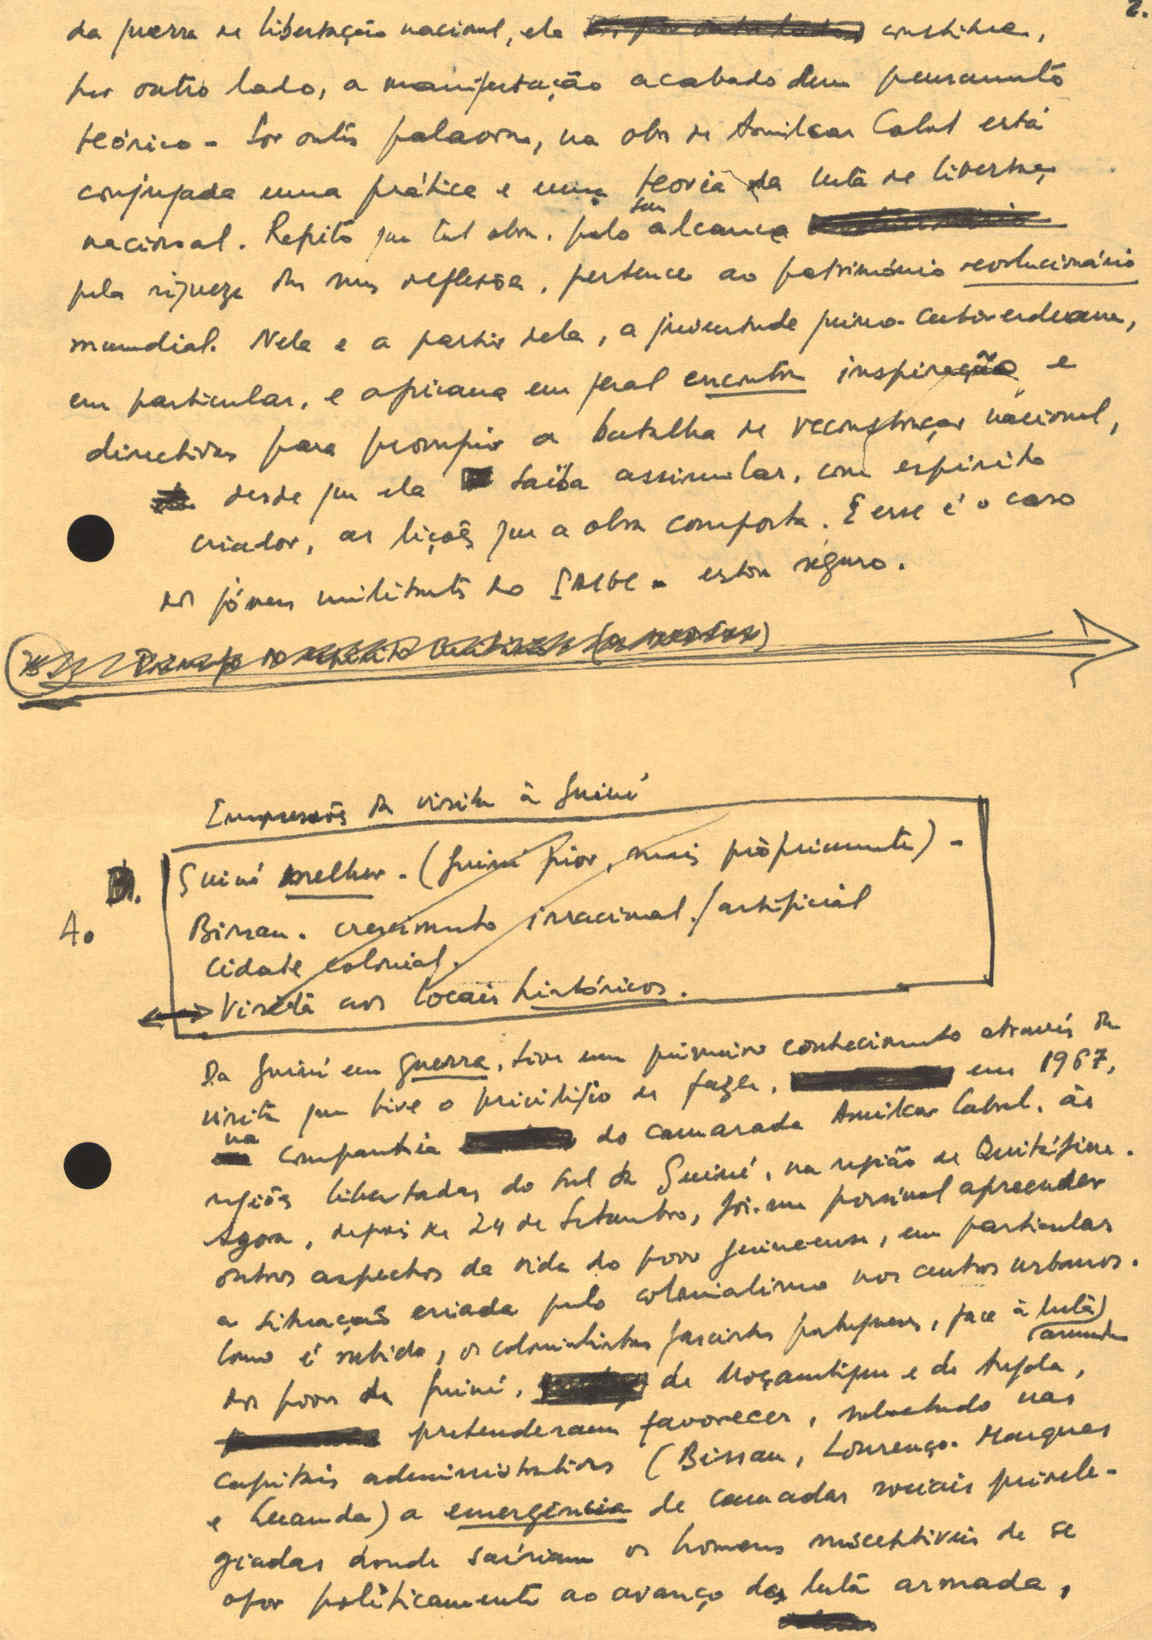 2.
da guerra de libertação nacional, ela constitue,
por outro lado, a manifestação acabada dum pensamento
teórico. Por outras palavras, na obra de Amilcar Cabral está
conjugada uma prática e uma teoria da luta de libertação
nacional. Repito que tal obra, pelo seu alcance
pela riqueza das suas reflexões, pertence ao património revolucionário
mundial. Nela e a partir dela, a juventude guineo-caboverdeana,
em particular, e africana em geral encontra inspiração e
directivas para prosseguir a batalha de reconstrução nacional,
desde que ela saiba assimilar, com espírito
criador, as lições que a obra comporta. E esse é o caso
dos jóvens militantes do PAIGC - estou seguro.
Impressões da visita à Guiné
B. Guiné melhor. (Guiné pior, mais pròpriamente) -
A. Bissau. crescimento irracional./artificial
Cidade colonial.
Visita aos locais históricos.
Da Guiné em guerra, tive um primeiro conhecimento através da
visita que tive o privilégio de fazer, em 1967,
na companhia do camarada Amilcar Cabral, às
regiões libertadas do sul da Guiné, na região de Quitáfine.
Agora, depois de 24 de Setembro, foi-me possível apreender
outros aspectos da vida do povo guineense, em particular
a situação criada pelo colonialismo nos centros urbanos.
Como é sabido, os colonialistas fascistas portugueses, face à luta armada
dos povos da Guiné, de Moçambique e de Angola,
pretenderam favorecer, sobretudo nas
capitais administrativas (Bissau, Lourenço-Marques
e Luanda) a emergência de camadas sociais privile-
giadas donde sairiam os homens susceptíveis de se
opor politicamente ao avanço da luta armada,